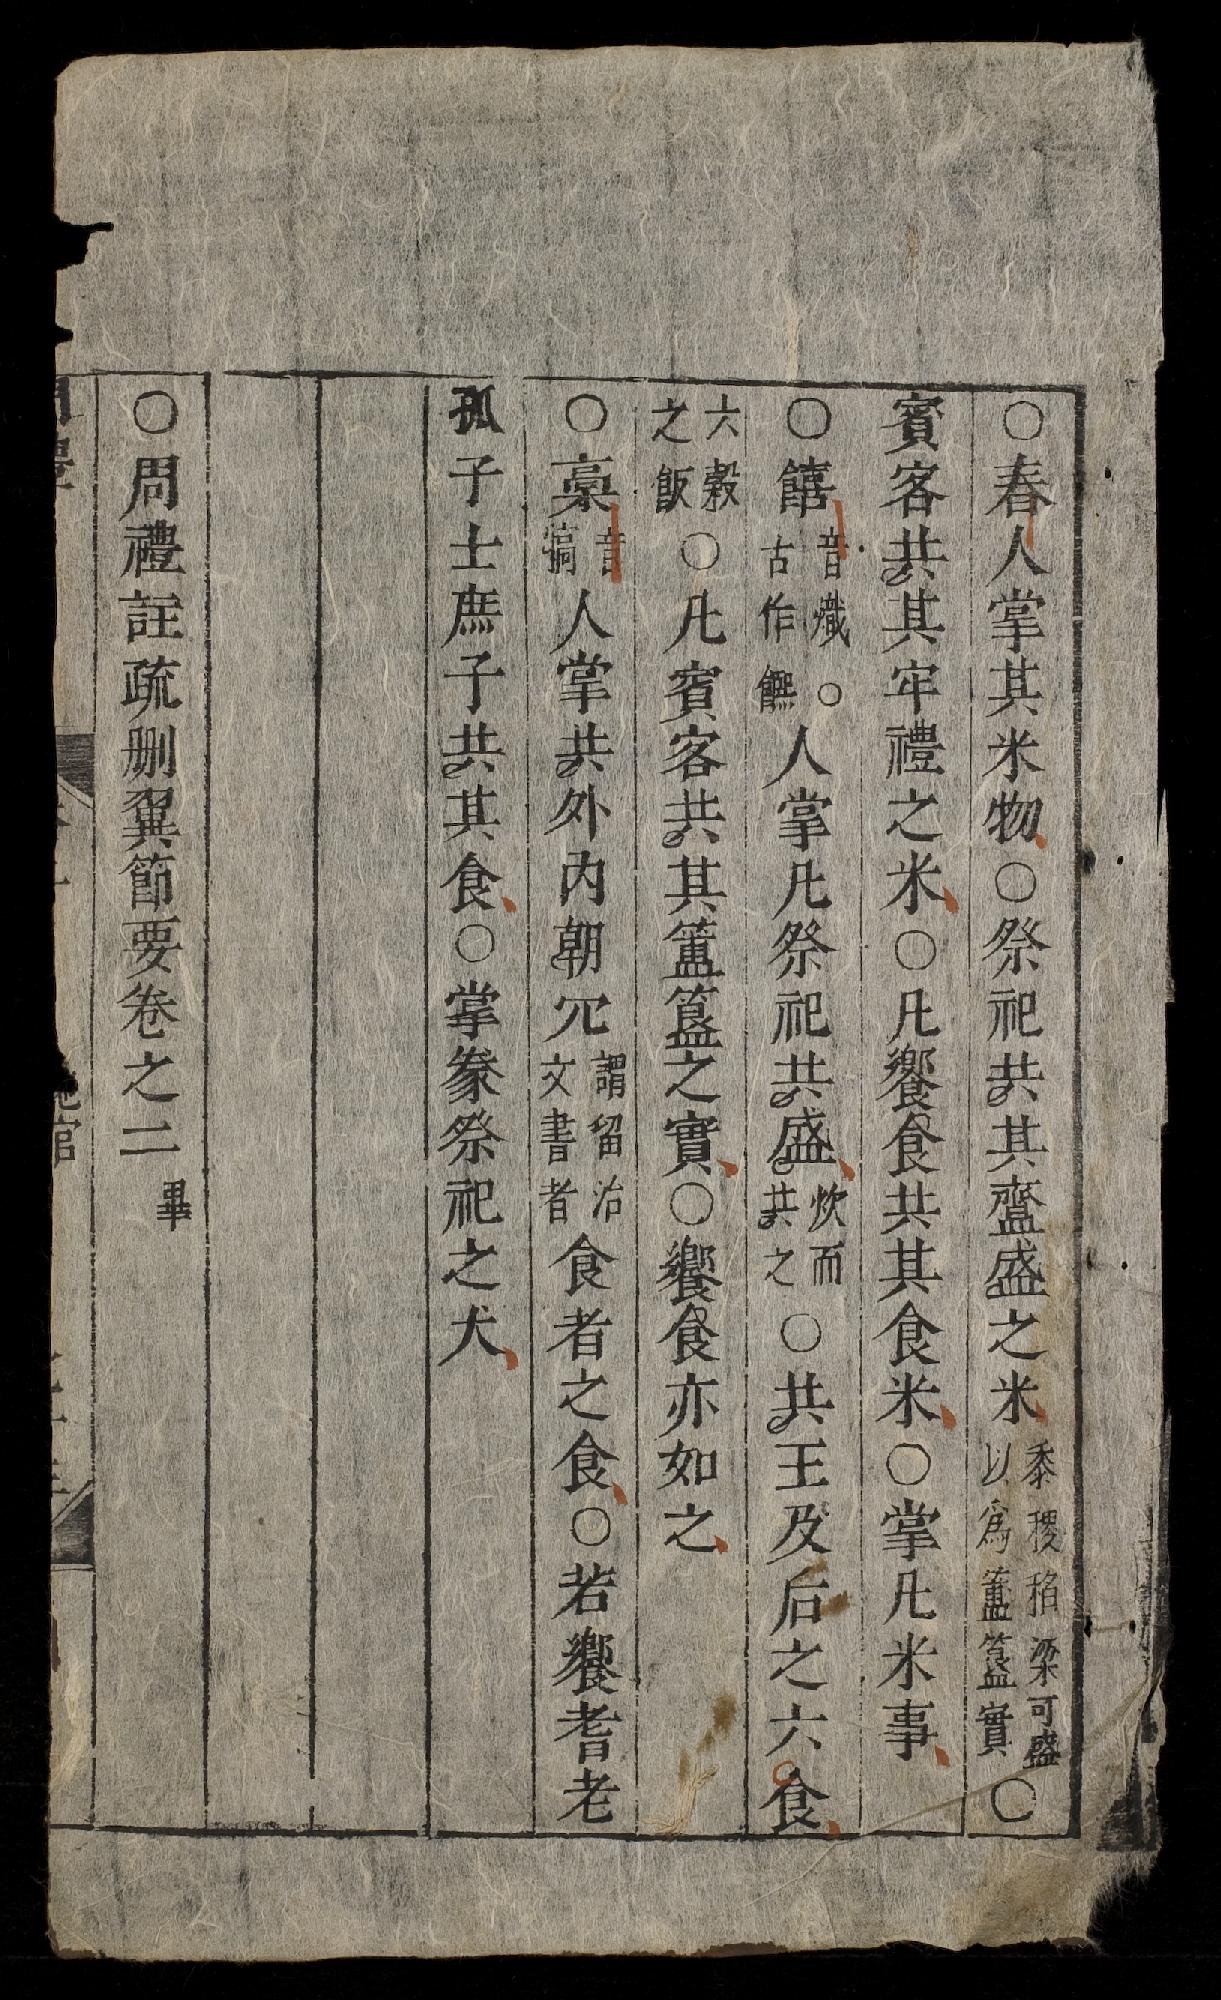 ○舂人掌其米物○祭祀共其齍盛之米黍稷稻粱可盛以爲簠簋實○
賓客共其牢禮之米○凡饗食共其食米○掌凡米事
○饎音熾○古作𩞾人掌凡祭祀共盛炊而共之○共王及后之六食
六穀之飯○凡賓客共其簠簋之實○饗食亦如之
○稾音犒人掌共外內朝冗謂留治文書者食者之食○若饗耆老
孤子士庶子共其食○掌豢祭祀之犬
○周禮註疏刪翼節要卷之二畢
地官